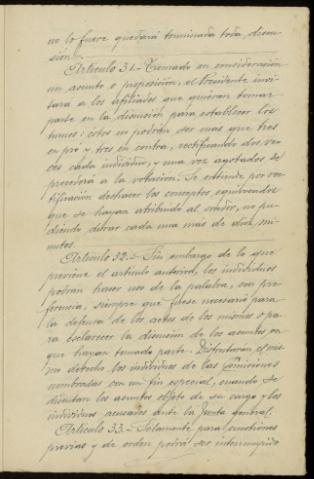 no lo fuere quedará terminada toda discu-
sión.
Artículo 31.- Tomado en consideración
un asunto o proposición, el Presidente invi-
tará a los afiliados que quieran tomar
parte en la discusión para establecer los
turnos: éstos no podrán ser mas que tres
en pró y tres en contra, rectificando dos ve-
ces cada individuo, y una vez agotados se
procederá a la votación. Se entiende por rec-
tificación deshacer los conceptos equivocados
que se hayan atribuido al orador, no pu-
diendo durar cada una más de diez mi-
nutos.
Artículo 32.- Sin embargo de lo que
previene el artículo anterior, los individuos
podrán hacer uso de la palabra, con pre-
ferencia, siempre que fuese necesario para
la defensa de los actos de los mismos o pa-
ra esclarecer la discusión de los asuntos en
que hayan tomado parte. Disfrutarán el mis-
mo derecho los individuos de las Comisiones
nombradas con un fin especial, cuando se
discutan los asuntos objeto de su cargo y los
individuos acusados ante la Junta general.
Artículo 33.- Solamente para cuestiones
previas y de orden podrá ser interrumpido